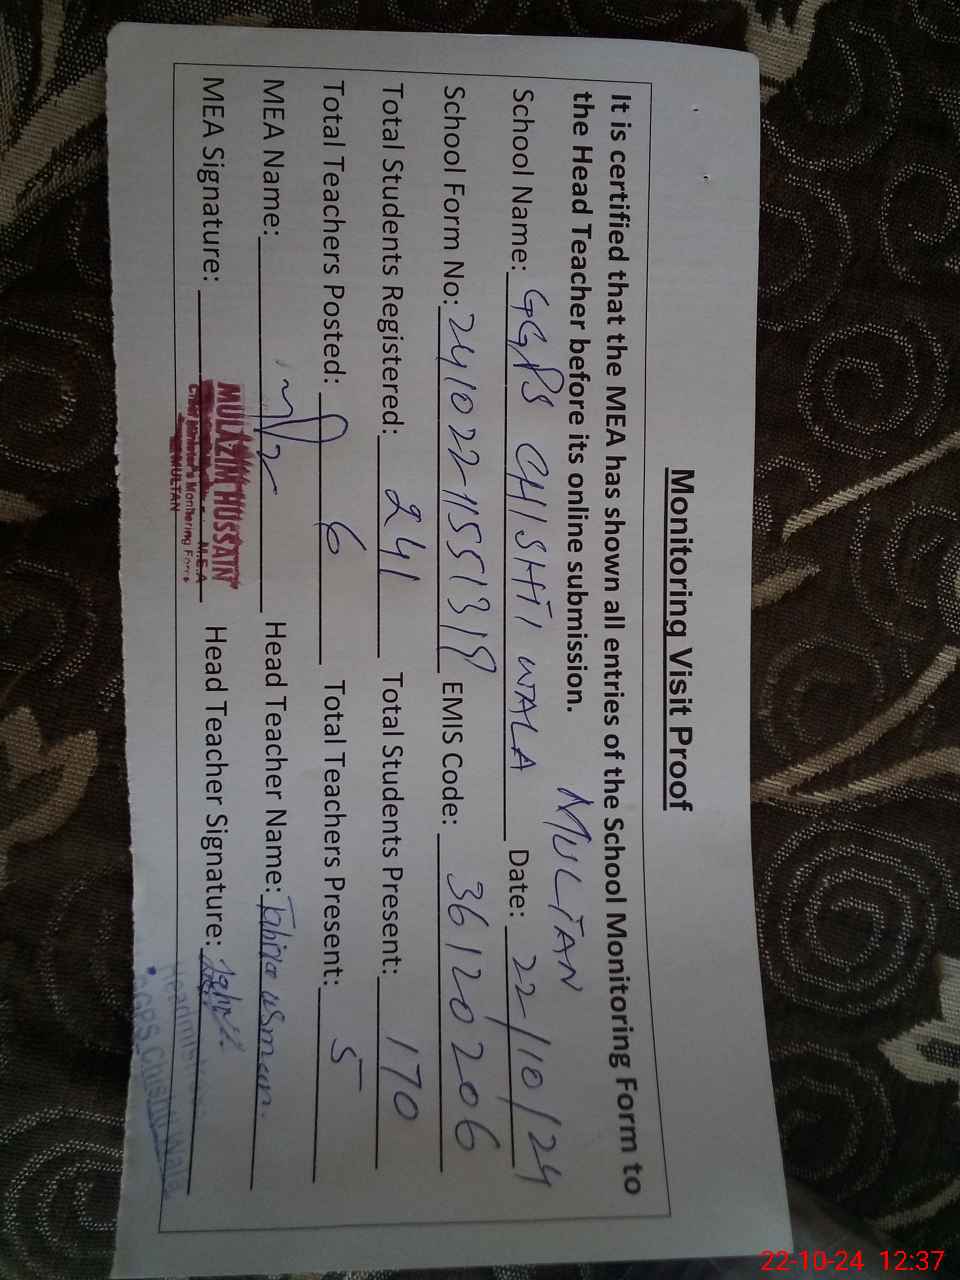 Monitoring Visit Proof
It is certified that the MEA has shown all entries of the School Monitoring Form to
the Head Teacher before its online submission.
MULTAN
School Name: GGPS CHISHTI WALA Date: 22/10/24
School Form No: EMIS Code: 36120206
Total Students Registered: 241 Total Students Present: 170
Total Teachers Posted: 6 Total Teachers Present: 5
MEA Name: Head Teacher Name: Tahira usman.
MEA Signature: Head Teacher Signature:
MULAZIM HUSSAIN
M.E.A
Chief Minister's Monitoring Force
MULTAN
Headmistress
GGPS Chishti Wala
22-10-24 12:37